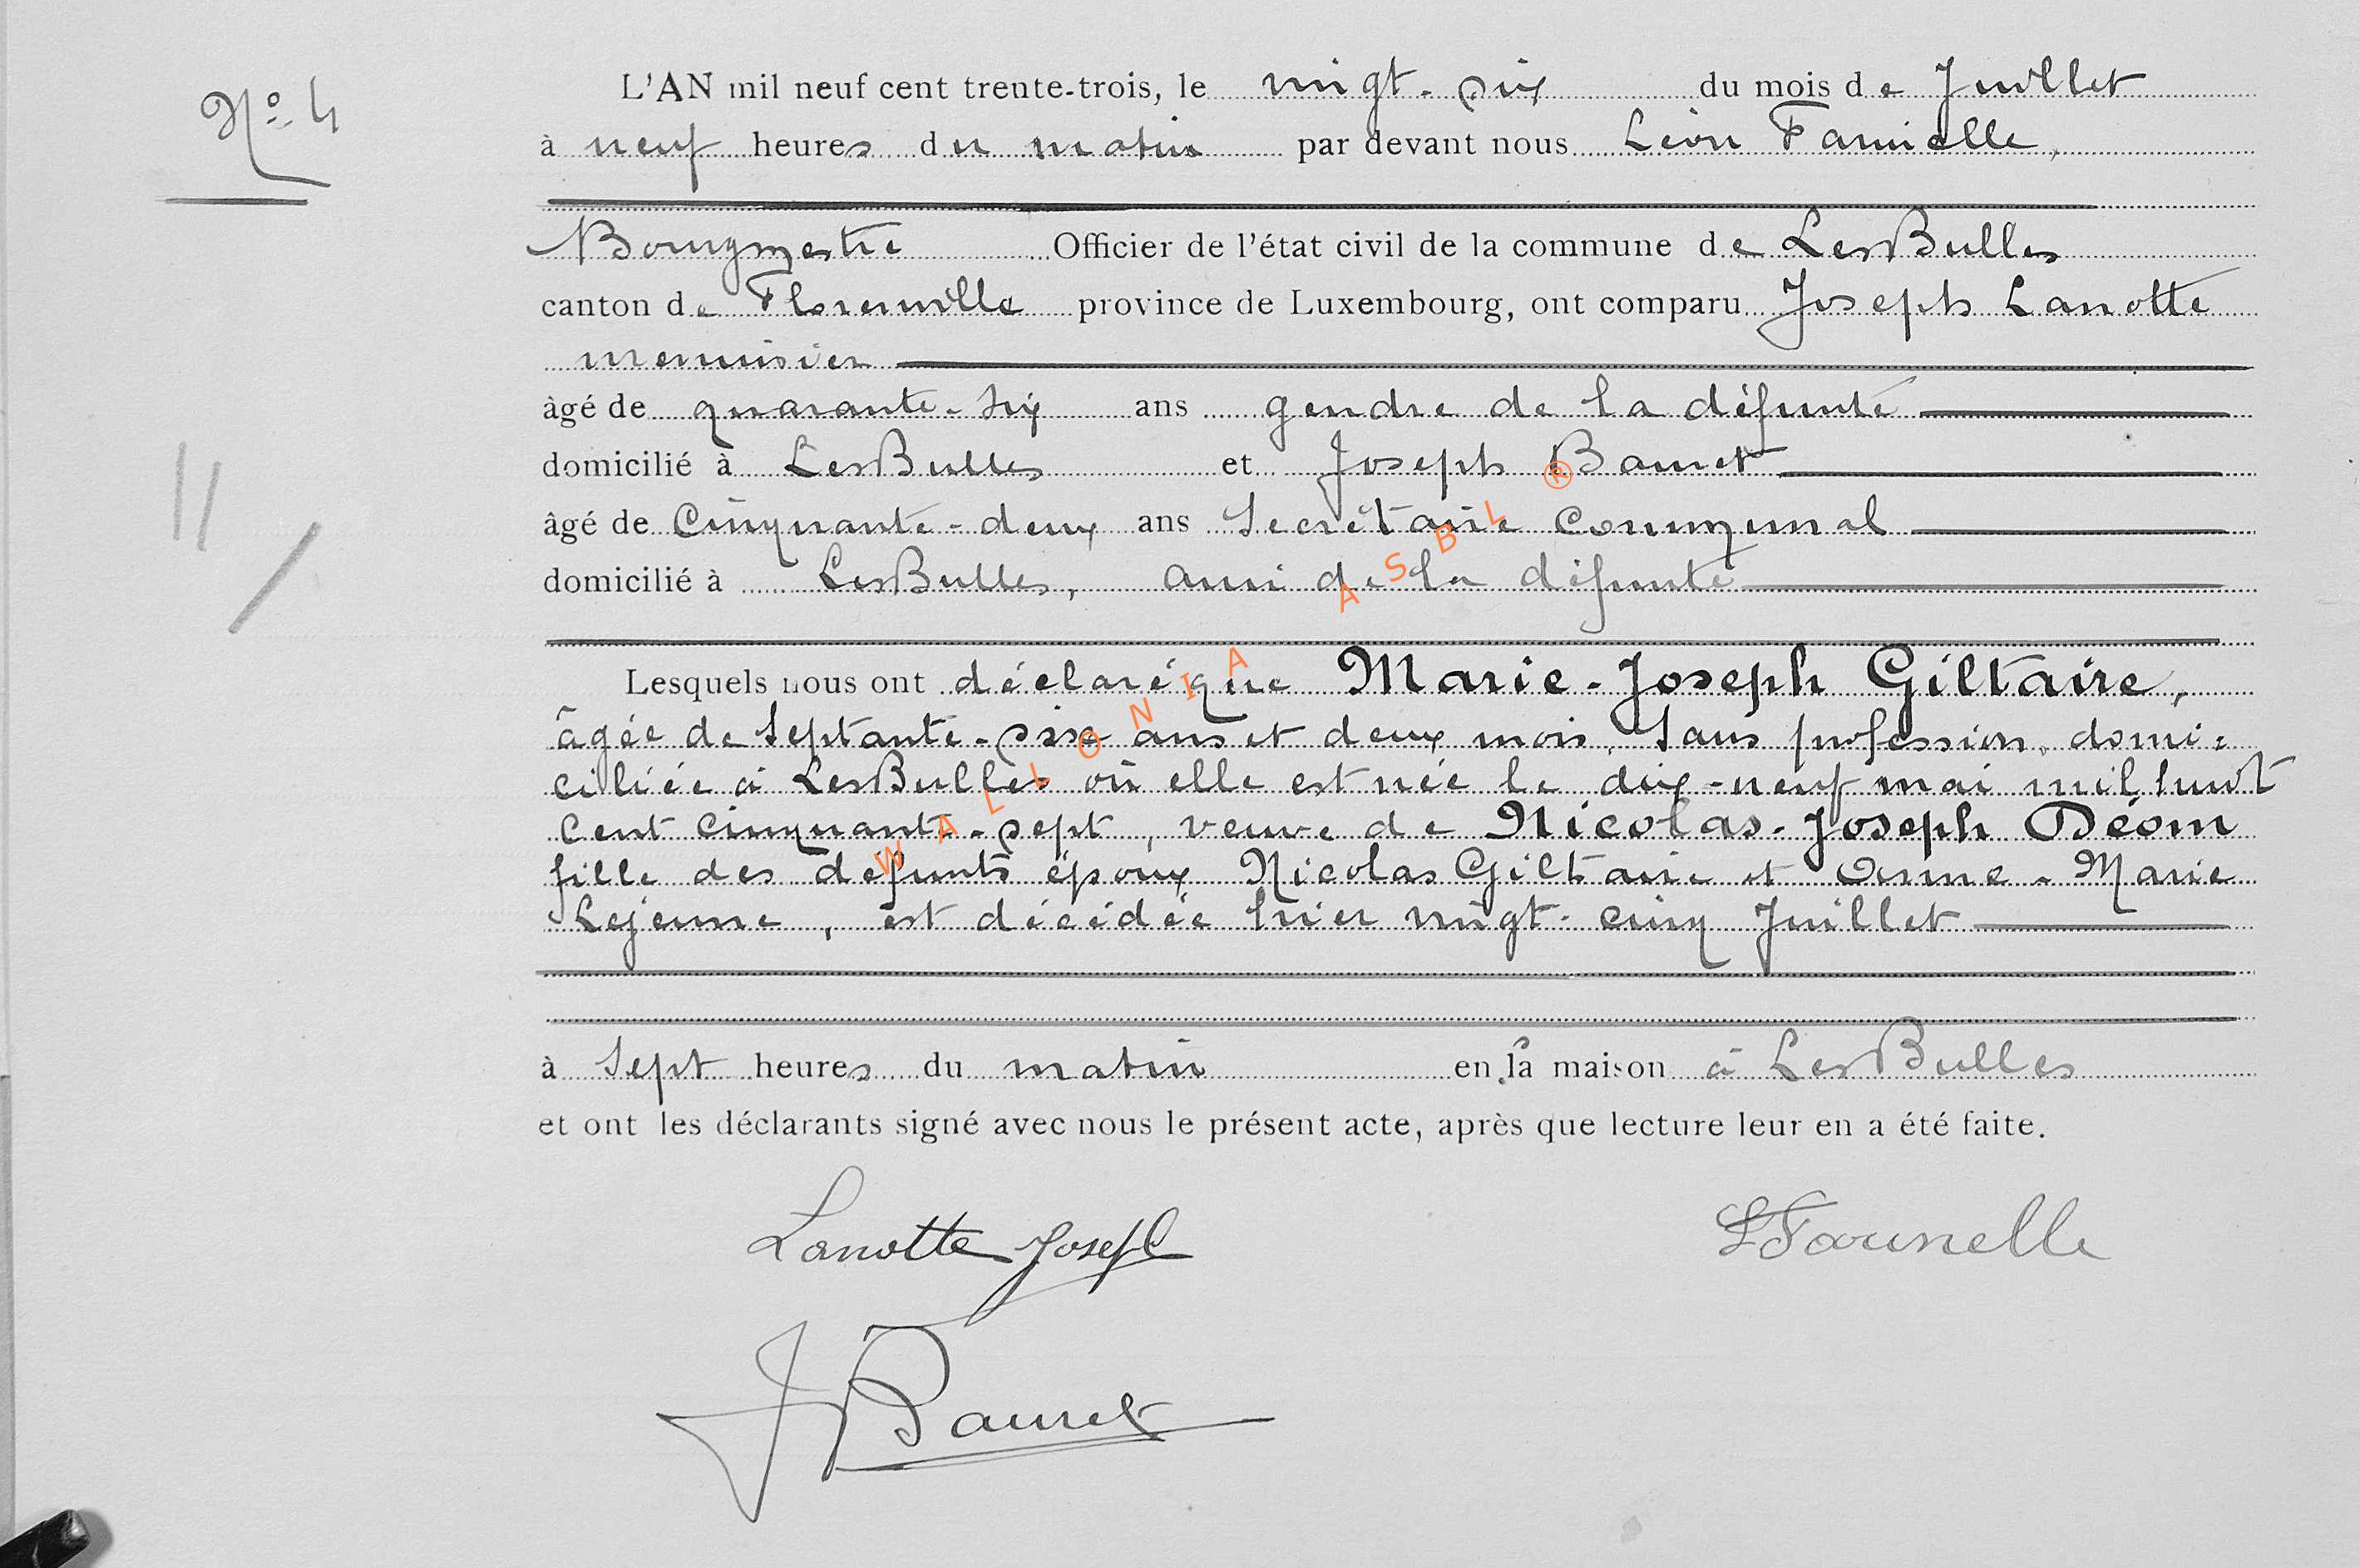 N° 4
L'AN mil neuf cent trente-trois, le vingt-six du mois de Juillet
à neuf heures du matin par devant nous Léon
Bourgmestre Officier de l'état civil de la commune de LesBulles
canton de Florenville province de Luxembourg, ont comparu Joseph Lanotte
menuisier
âgé de quarante-six ans gendre de la défunte
domicilié à LesBulles et Joseph
âgé de Cinquante-deux ans Secrétaire Communal
domicilié à LesBulles, ami de la défunte
Lesquels nous ont déclaré que Marie-Joseph Giltaire,
âgée de Septante-six ans et deux mois, Sans profession, domi=
ciliée à LesBulles où elle est née le dix-neuf mai mil huit
Cent cinquante-sept, veuve de Nicolas-Joseph Déom
fille des défunts époux Nicolas Giltaire et Anne-Marie
Lejeune, est décédée hier vingt-cinq Juillet
à Sept heures du matin en sa maison à LesBulles
et ont les déclarants signé avec nous le présent acte, après que lecture leur en a été faite.
Lanotte Joseph
WALLONIA ASBL ®